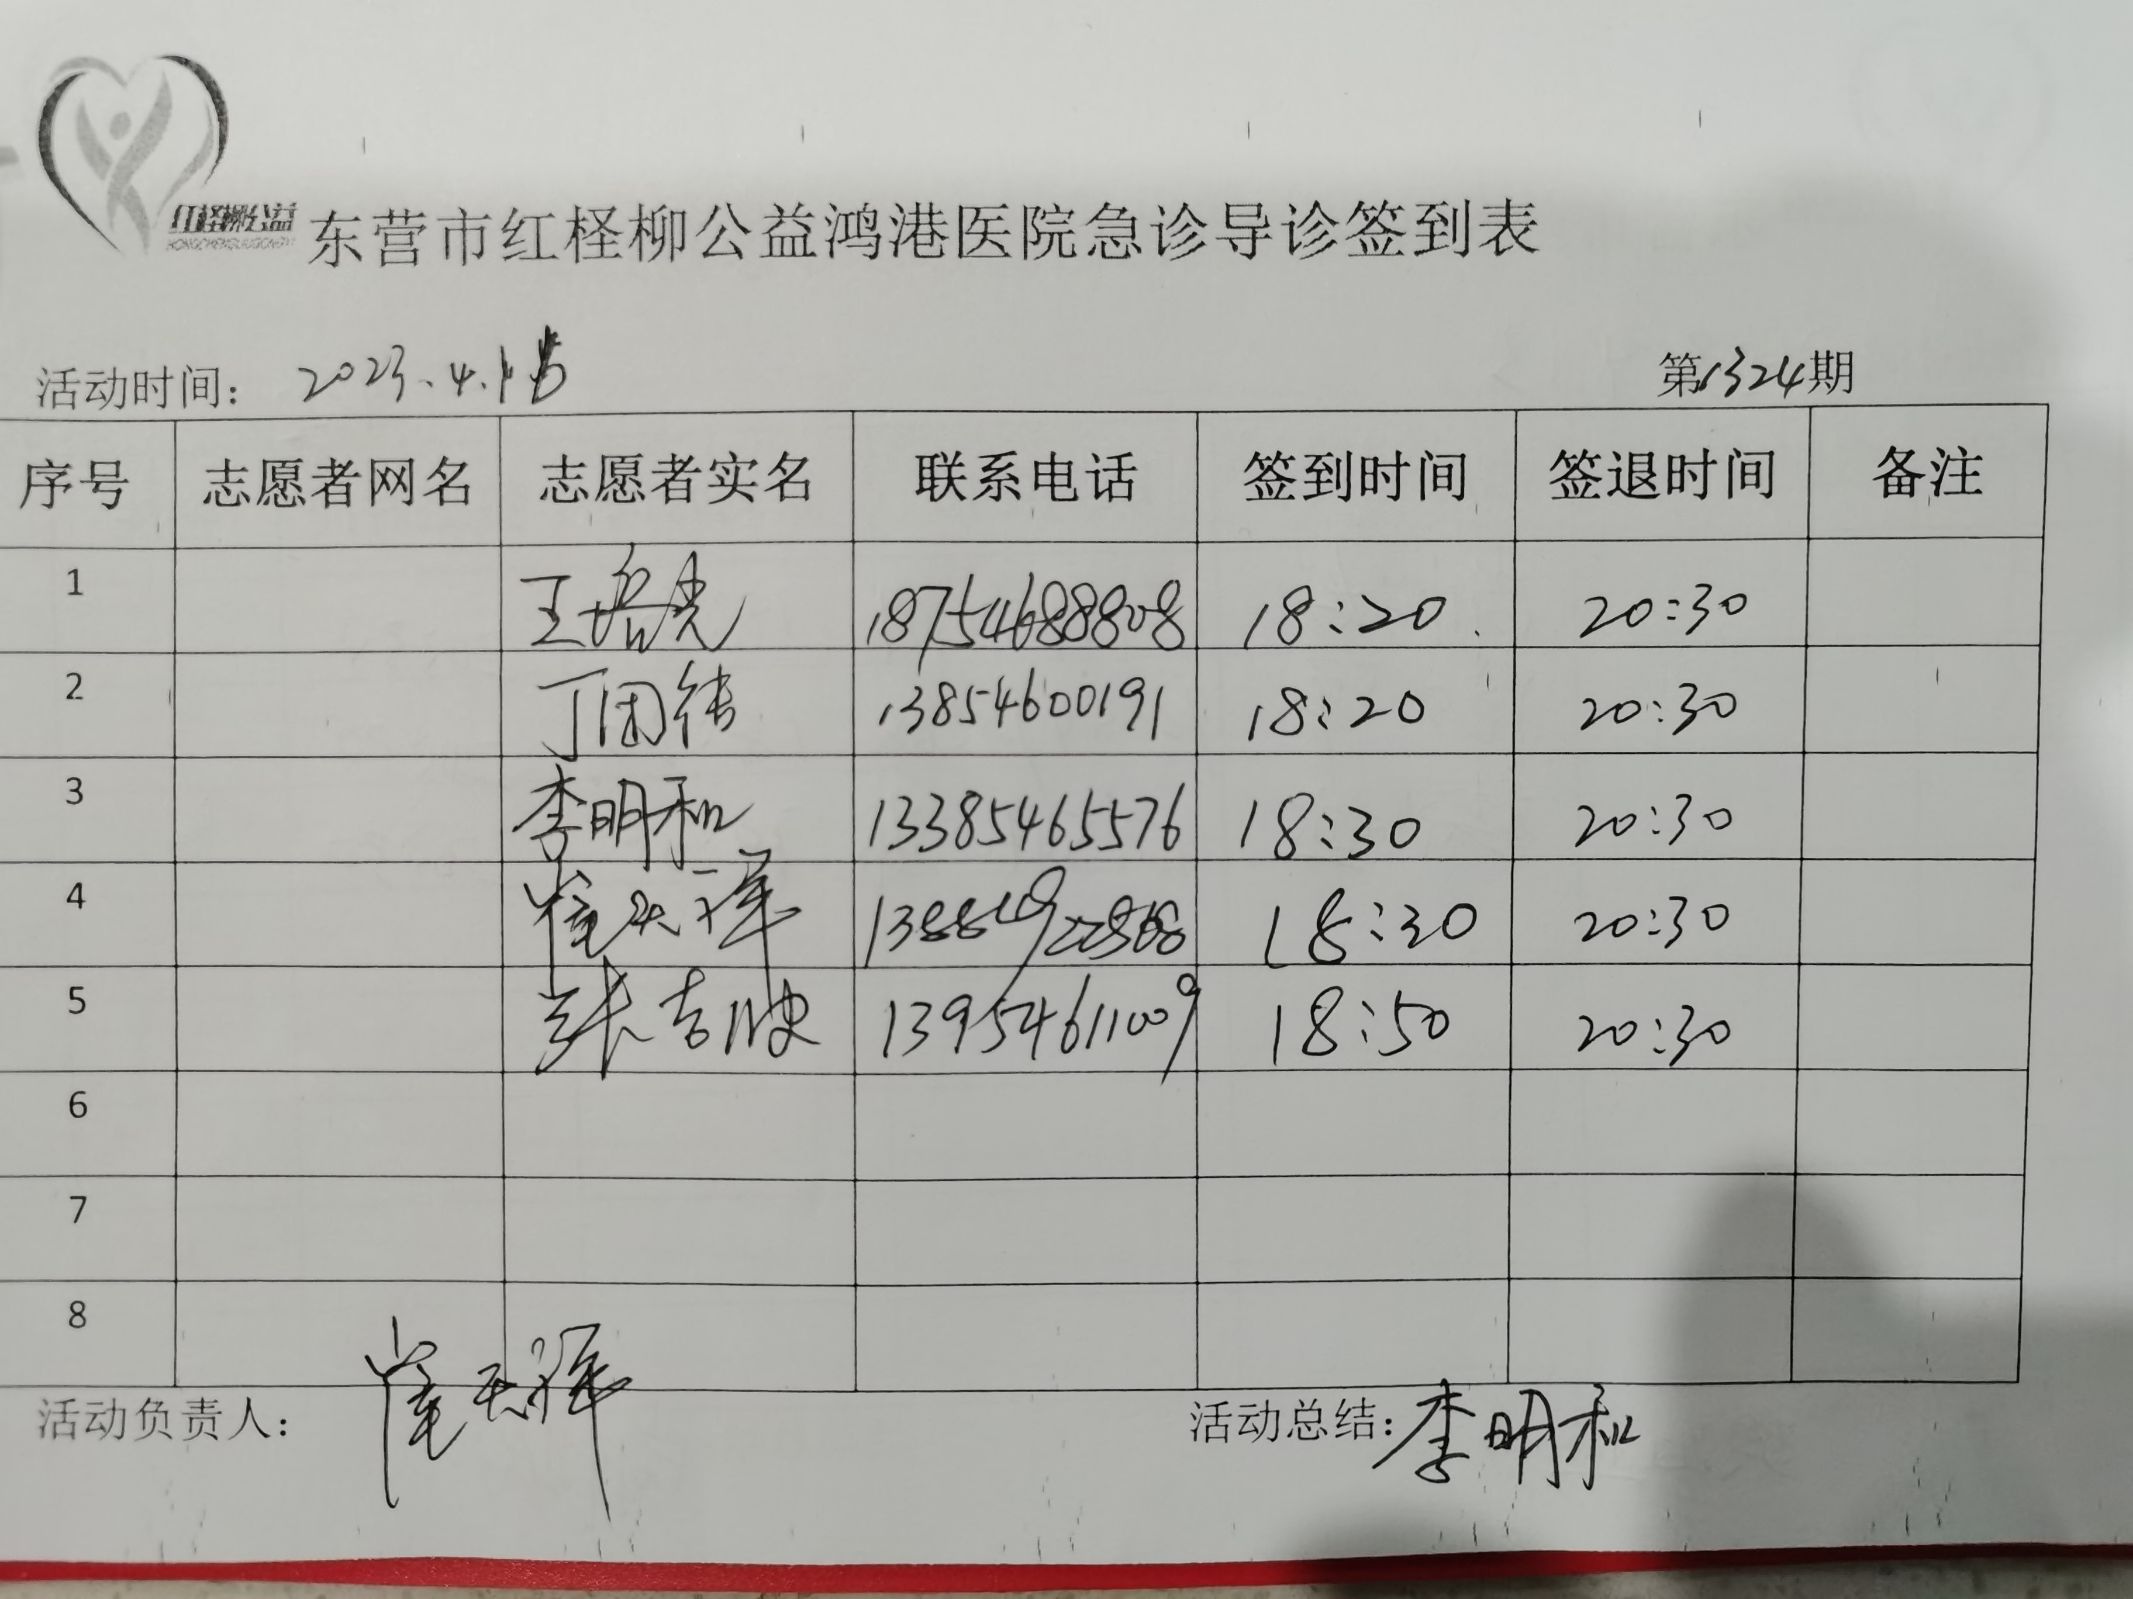 红柽柳公益
东营市红柽柳公益鸿港医院急诊导诊签到表
活动时间: 2023.4.1 第1324期
序号 志愿者网名 志愿者实名 联系电话 签到时间 签退时间 备注
1 王 18754688808 18:20 20:30
2 丁 13854600191 18:20 20:30
3 李明和 13385465576 18:30 20:30
4 崔天祥 18:30 20:30
5 张吉 13954611009 18:50 20:30
6
7
8
活动负责人: 崔天祥 活动总结: 李明和